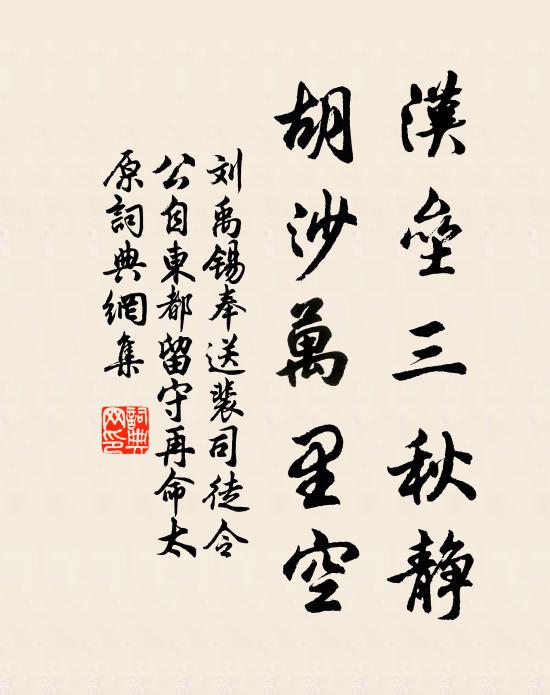 漢壘三秋静
胡沙萬里空
刘禹锡奉送裴司徒令
公自東都留守再命太
原詞典網集
詞典
网印